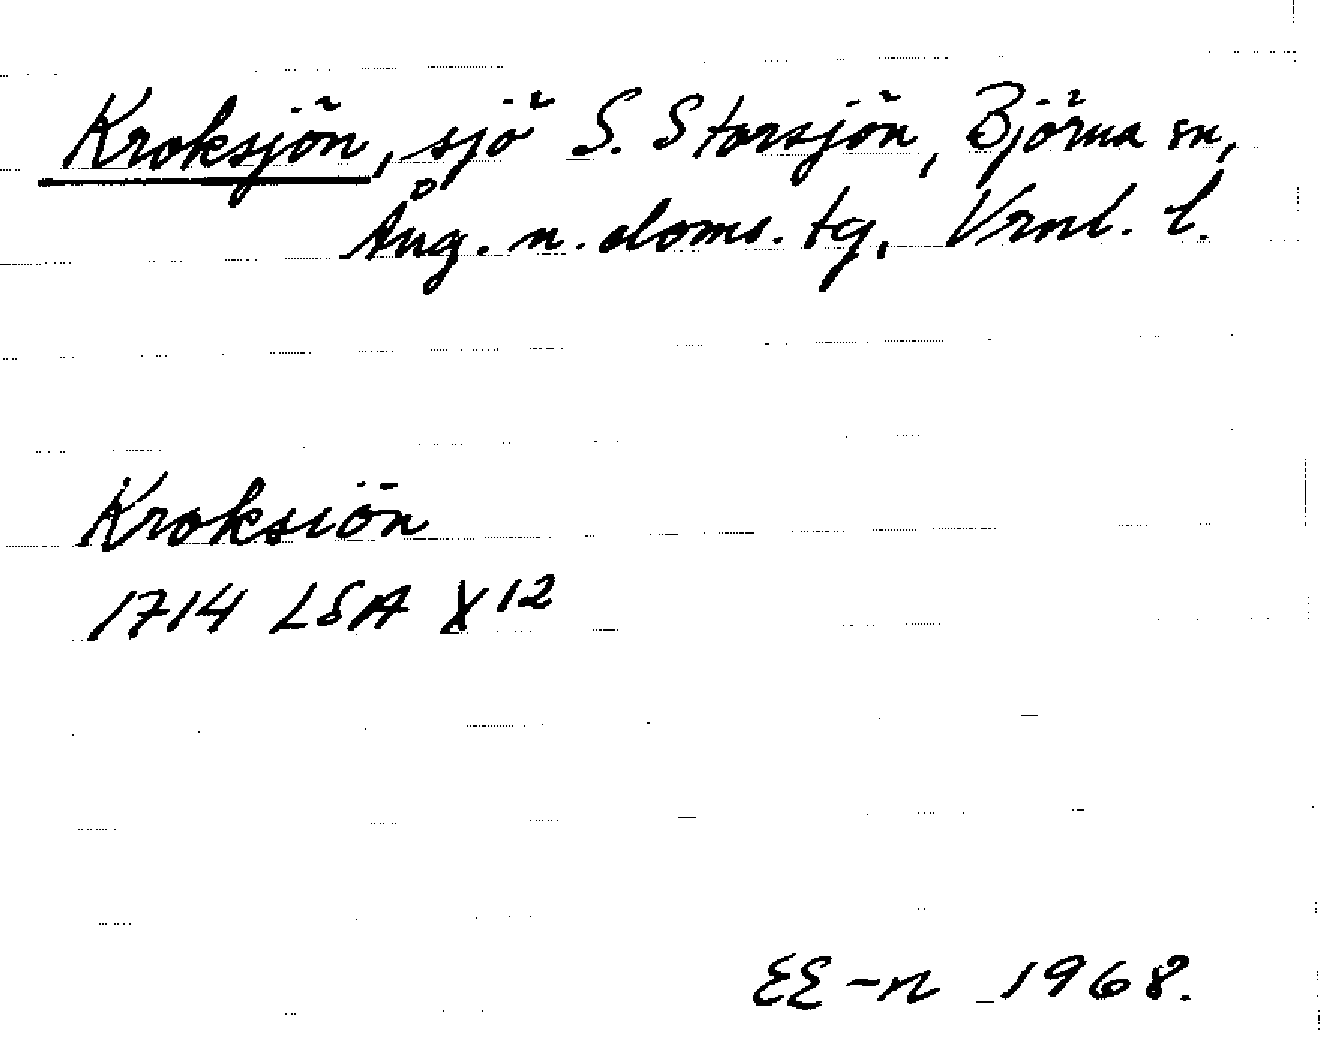 Kroksjön, sjö S. Storsjön, Björna sn,
Ång. n. doms. tg, Vrnl. l.
Kroksiön
1714 LSA X 12
EE-n 1968.